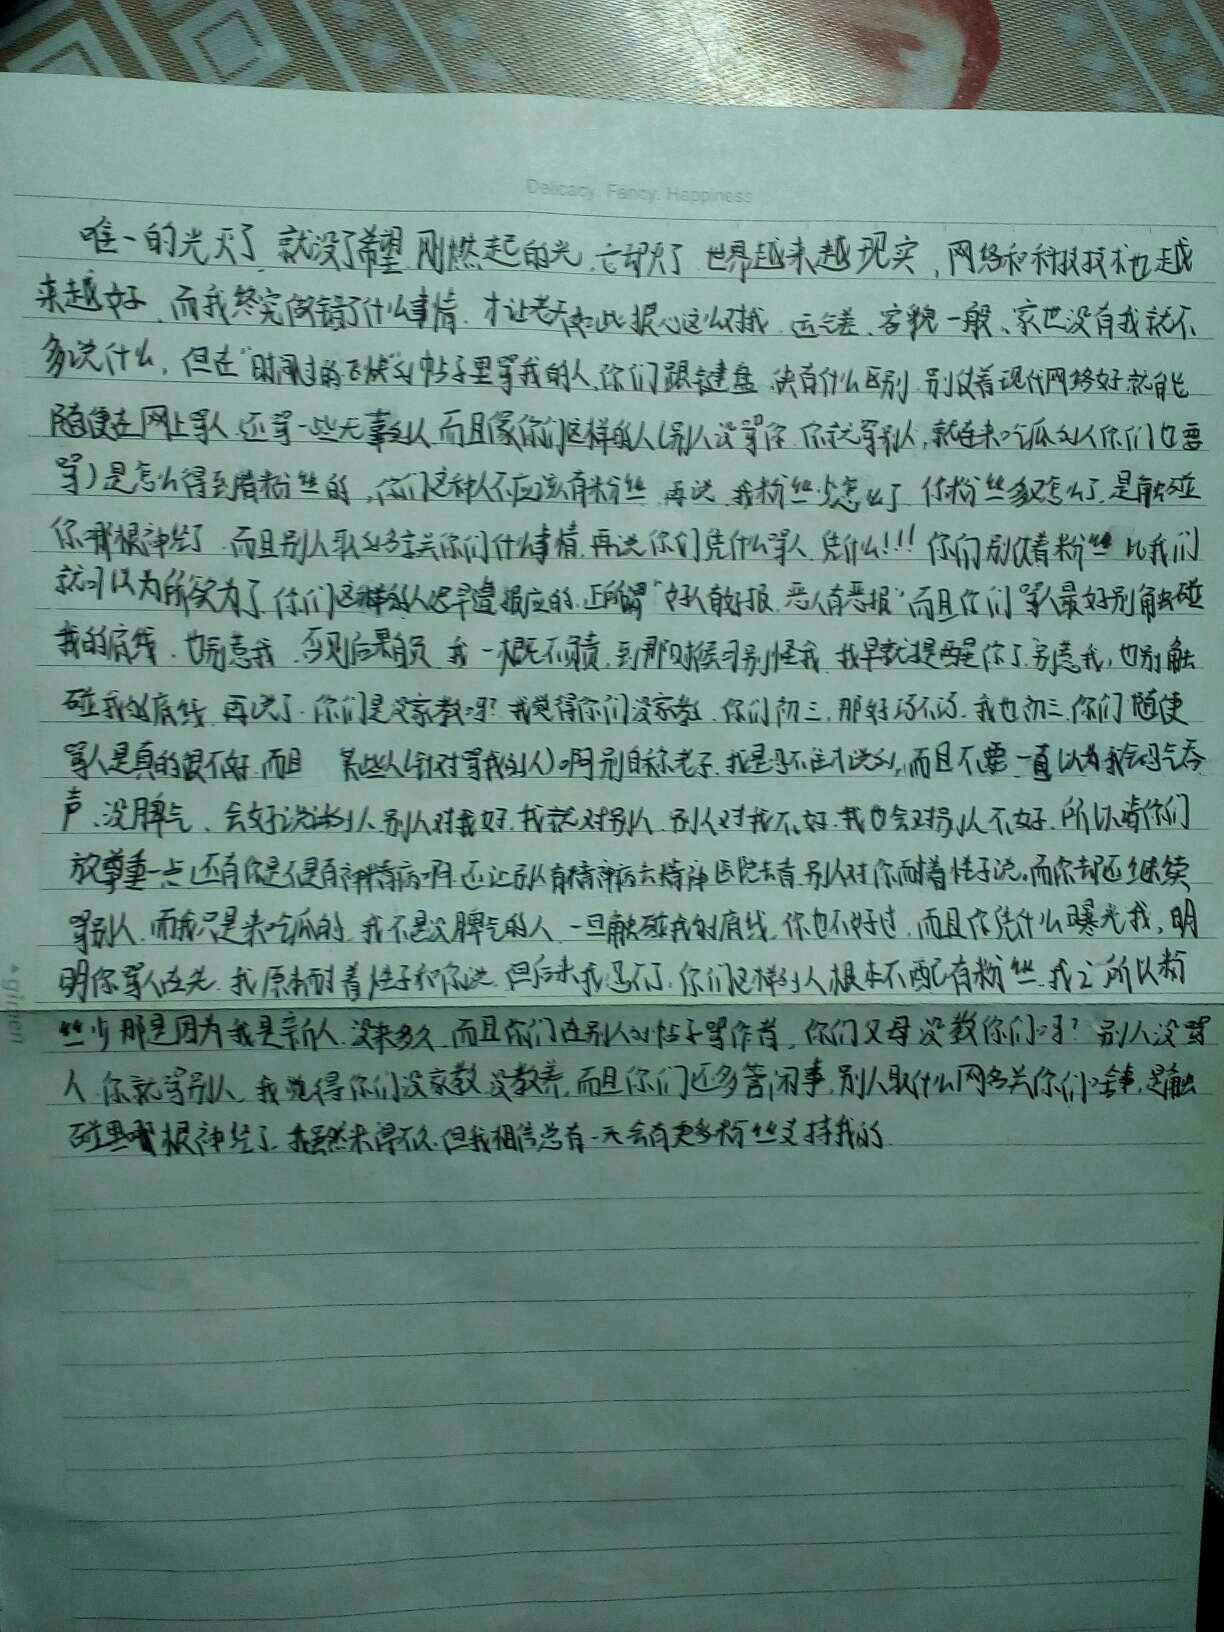 Delicacy. Fancy. Happiness
唯一的光灭了 就没了希望 刚燃起的光 它却灭了 世界越来越现实,网络和科技技术也越
来越好 而我终究做错了什么事情 才让老天如此狠心这么对我 运气差、容貌一般、家世没有我就不
多说什么,但在“时间过的飞快”的帖子里骂我的人,你们跟键盘侠有什么区别 别仗着现代网络好就能
随便在网上骂人 还骂一些无辜的人 而且像你们这样的人(别人没骂你 你就骂别人,就连来吃瓜的人你们也要
骂)是怎么得到着粉丝的,你们这种人不应该有粉丝 再说 我粉丝少怎么了 你粉丝多又怎么了 是触碰
你哪根神经了 而且别人取的名关你们什么事情 再说你们凭什么骂人 凭什么!!! 你们别仗着粉丝比我们
就可以为所欲为了 你们这样的人迟早遭报应的 正所谓“好人有好报 恶人有恶报”而且你们骂人最好别触碰
我的底线 也别惹我 否则后果自负 我一概不负责 到那时候可别怪我 我早就提醒你了 别惹我,也别触
碰我的底线 再说了 你们是没家教吗? 我觉得你们没家教 你们初三 那好巧不巧 我也初三 你们随便
骂人是真的很不好 而且 某些人(针对骂我的人)啊别自称老子 我是忍不住才说的,而且不要一直以为我会忍气吞
声、没脾气、会好说话的人 别人对我好 我就对别人 别人对我不好 我也会对别人不好 所以请你们
放尊重一点 还有你是不是有神精病啊 还让别人有精神病去精神医院去看 别人对你耐着性子说 而你却还继续
骂别人 而我只是来吃瓜的 我不是没脾气的人 一旦触碰我的底线 你也不好过 而且你凭什么曝光我,明
明你骂人在先 我原本耐着性子和你说 但后来我忍不了 你们这样的人根本不配有粉丝 我之所以粉
丝少 那是因为我是新人 没来多久 而且你们在别人的帖子骂作者,你们父母没教你们吗? 别人没骂
人 你就骂别人 我觉得你们没家教 没教养 而且你们还多管闲事 别人取什么网名关你们啥事 是触
碰里哪根神经了 我虽然来得不久 但我相信总有一天会有更多粉丝支持我的